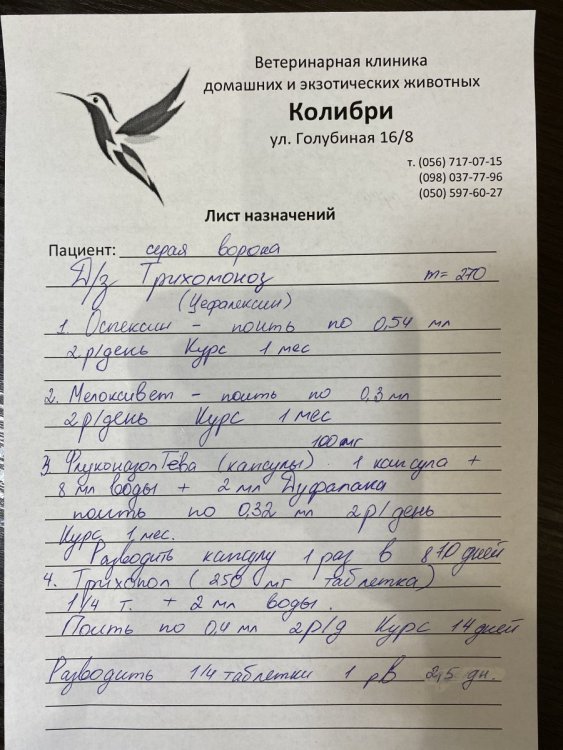 Ветеринарная клиника
домашних и экзотических животных
Колибри
ул. Голубиная 16/8
т. (056) 717-07-15
(098) 037-77-96
(050) 597-60-27
Лист назначений
Пациент: серая ворона
Д/з Трихомоноз m= 270
(Цефалексин)
1. Оспексин - поить по 0,54 мл
2 р/день Курс 1 мес
2. Мелоксивет - поить по 0,3 мл
2 р/день Курс 1 мес
100 мг
3. Флуконазол Тева (капсулы) 1 капсула +
8 мл воды + 2 мл Дуфалака
поить по 0,32 мл 2 р/день
Курс 1 мес.
Разводить капсулу 1 раз в 10 дней
4. Трихопол (250 мг таблетка)
1/4 т. + 2 мл воды.
Поить по 0,4 мл 2р/д Курс 14 дней
Разводить 1/4 таблетки 1 р в 2,5 дн.